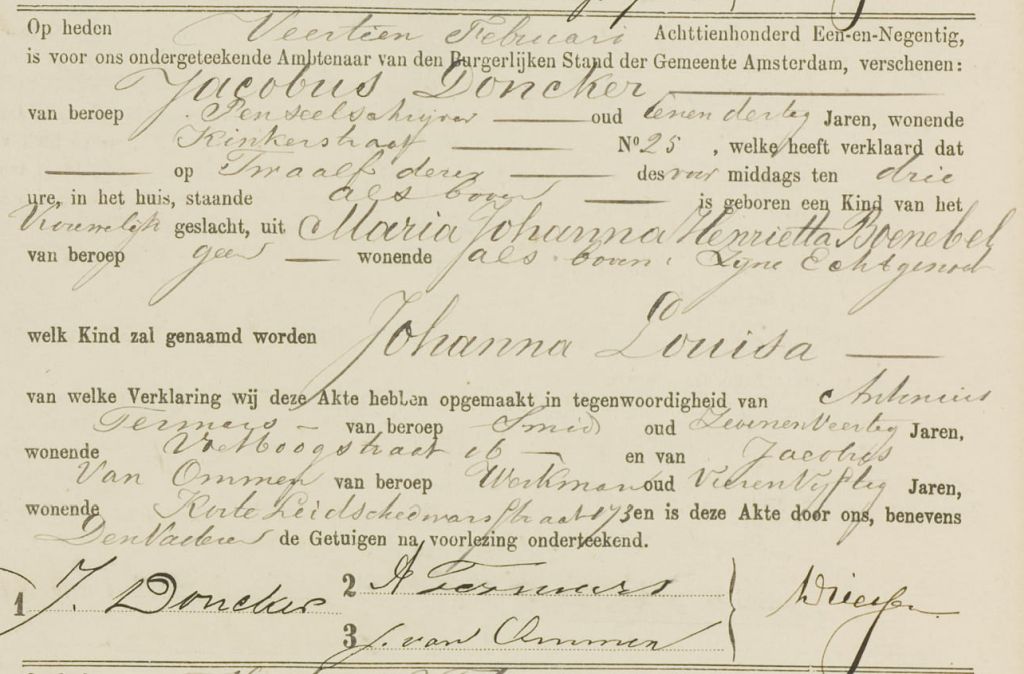 Op heden Veertien Februari Achttienhonderd Een-en-Negentig,
is voor ons ondergeteekende Ambtenaar van den Burgerlijken Stand der Gemeente Amsterdam, verschenen:
Jacobus Doncker
van beroep Penseelschrijver oud eenendertig Jaren, wonende
Kinkerstraat No 25 , welke heeft verklaard dat
op Twaalf dezer des voor middags ten drie
ure, in het huis, staande als boven is geboren een Kind van het
Vrouwelijk geslacht, uit Maria Johanna Henrietta Boenebel
van beroep geen wonende als boven, Zijne Echtgenoot
welk Kind zal genaamd worden Johanna Louisa
van welke Verklaring wij deze Akte hebben opgemaakt in tegenwoordigheid van Antonius
Termurs van beroep Smid oud Zevenenveertig Jaren,
wonende 16 en van Jacobus
Van Ommen van beroep Werkman oud VierenVijftig Jaren,
wonende Korte Leidschedwarsstraat 173 en is deze Akte door ons, benevens
Den Vader de Getuigen na voorlezing onderteekend.
1 J. Doncker 2 A Termurs
3 J. van Ommen